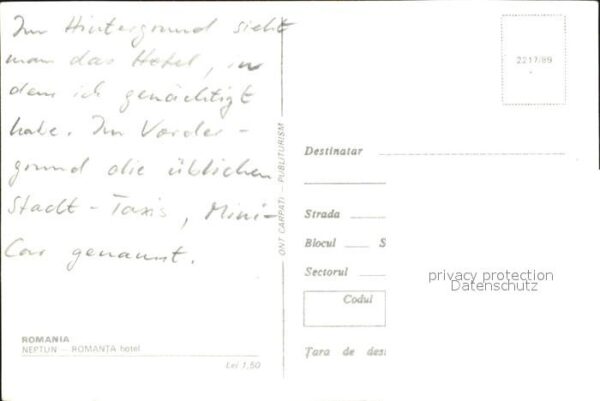 Im Hintergrund sieht
man das Hotel, in
dem ich genächtigt
habe. Im Vorder-
grund die üblichen
Stadt-Taxis, Mini-
Car genannt.
ROMANIA
NEPTUN — ROMANȚA hotel
Lei 1,50
ONT CARPAȚI — PUBLITURISM
2217/89
Destinatar
Strada
Blocul S
Sectorul
Codul
Țara de des
privacy protection
Datenschutz